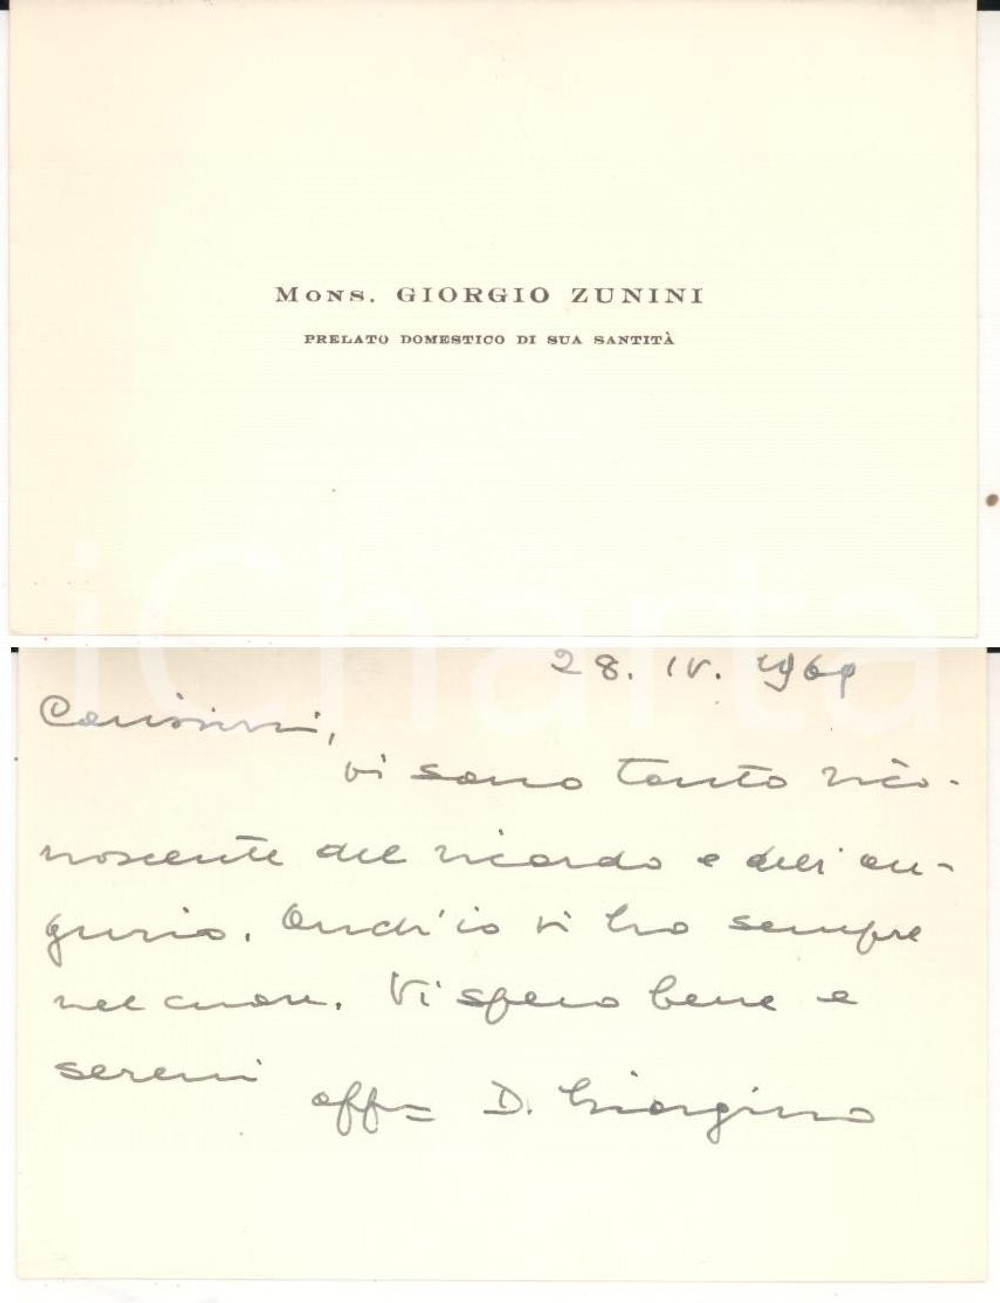 Mons. GIORGIO ZUNINI
PRELATO DOMESTICO DI SUA SANTITÀ
iCharta
28. IV. 1969
Carissimi,
vi sono tanto rico-
noscente del ricordo e dell'au-
gurio. Anch'io vi ho sempre
nel cuore. Vi spero bene e
sereni
aff. D. Giorgino